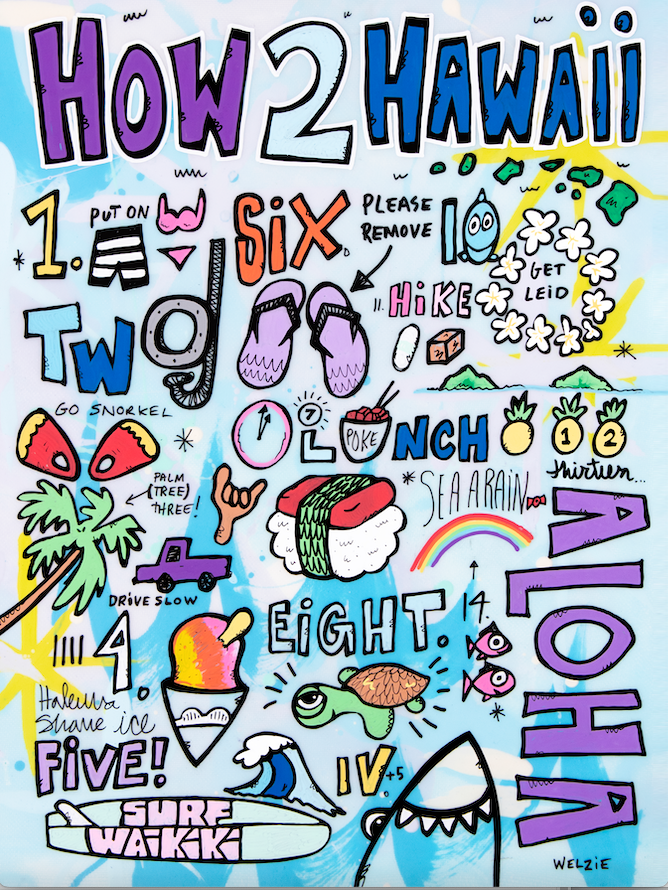 HOW 2 HAWAii
1. PUT ON
SiX
PLEASE
REMOVE
10
GET
LEiD
11. HiKE
TWO
GO SNORKEL
7
LUNCH
POKE
1 2
thirteen...
PALM
(TREE)
THREE!
SEA A RAiN
ALOHA
DRiVE SLOW
EiGHT.
14.
IIII 4
Haleiwa
Shave ice
FiVE!
IV.+5
SURF
WAiKiKi
WELZiE